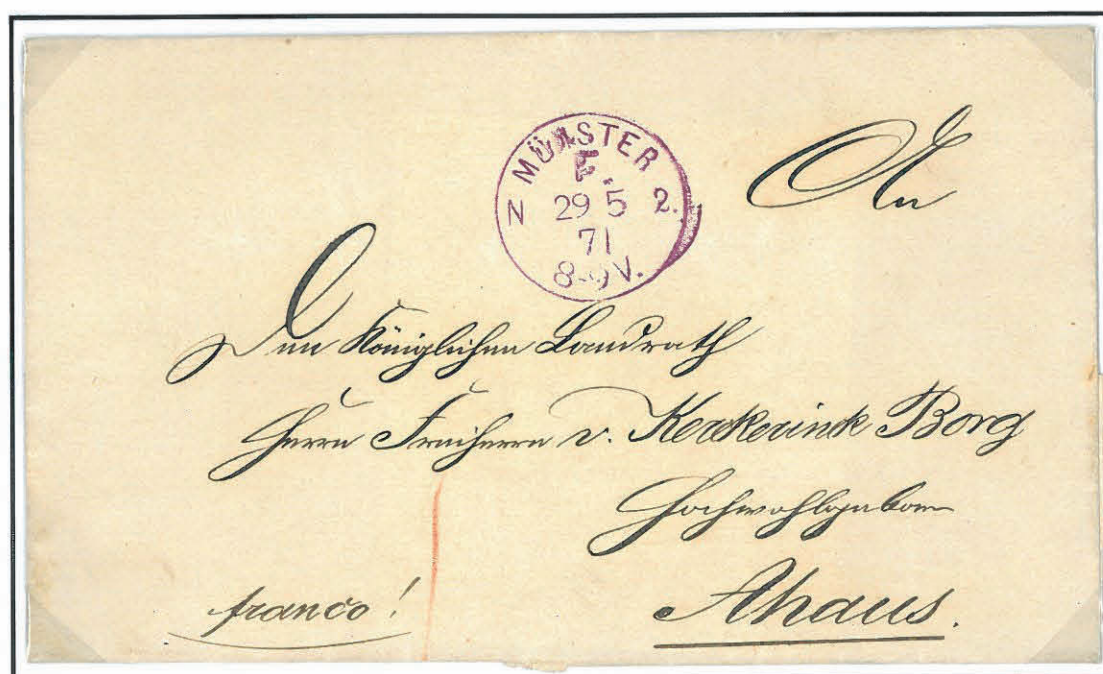 MÜNSTER
N 29 5 2.
71
8-9V.
An
Den Königlichen Landrath
Herrn Freiherrn v. Kerkerinck Borg
Hochwohlgeborn
franco!
Ahaus.